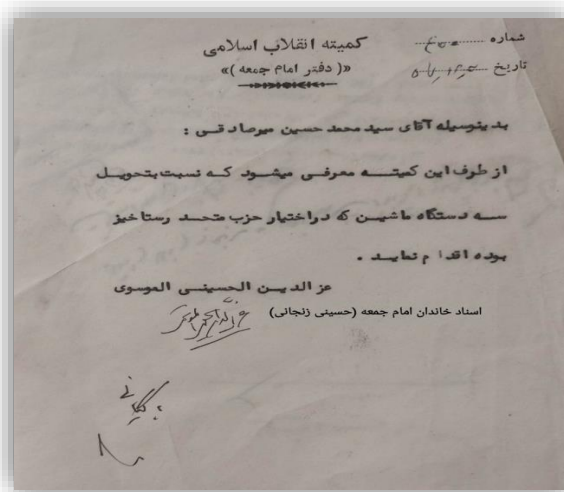 کمیته انقلاب اسلامی
«( دفتر امام جمعه )»
شماره
تاریخ
بدینوسیله آقای سید محمد حسین میرصادقی :
از طرف این کمیته معرفی میشود که نسبت بتحویل
سه دستگاه ماشین که در اختیار حزب متحد رستاخیز
بوده اقدام نماید .
عز الدین الحسینی الموسوی
اسناد خاندان امام جمعه (حسینی زنجانی)